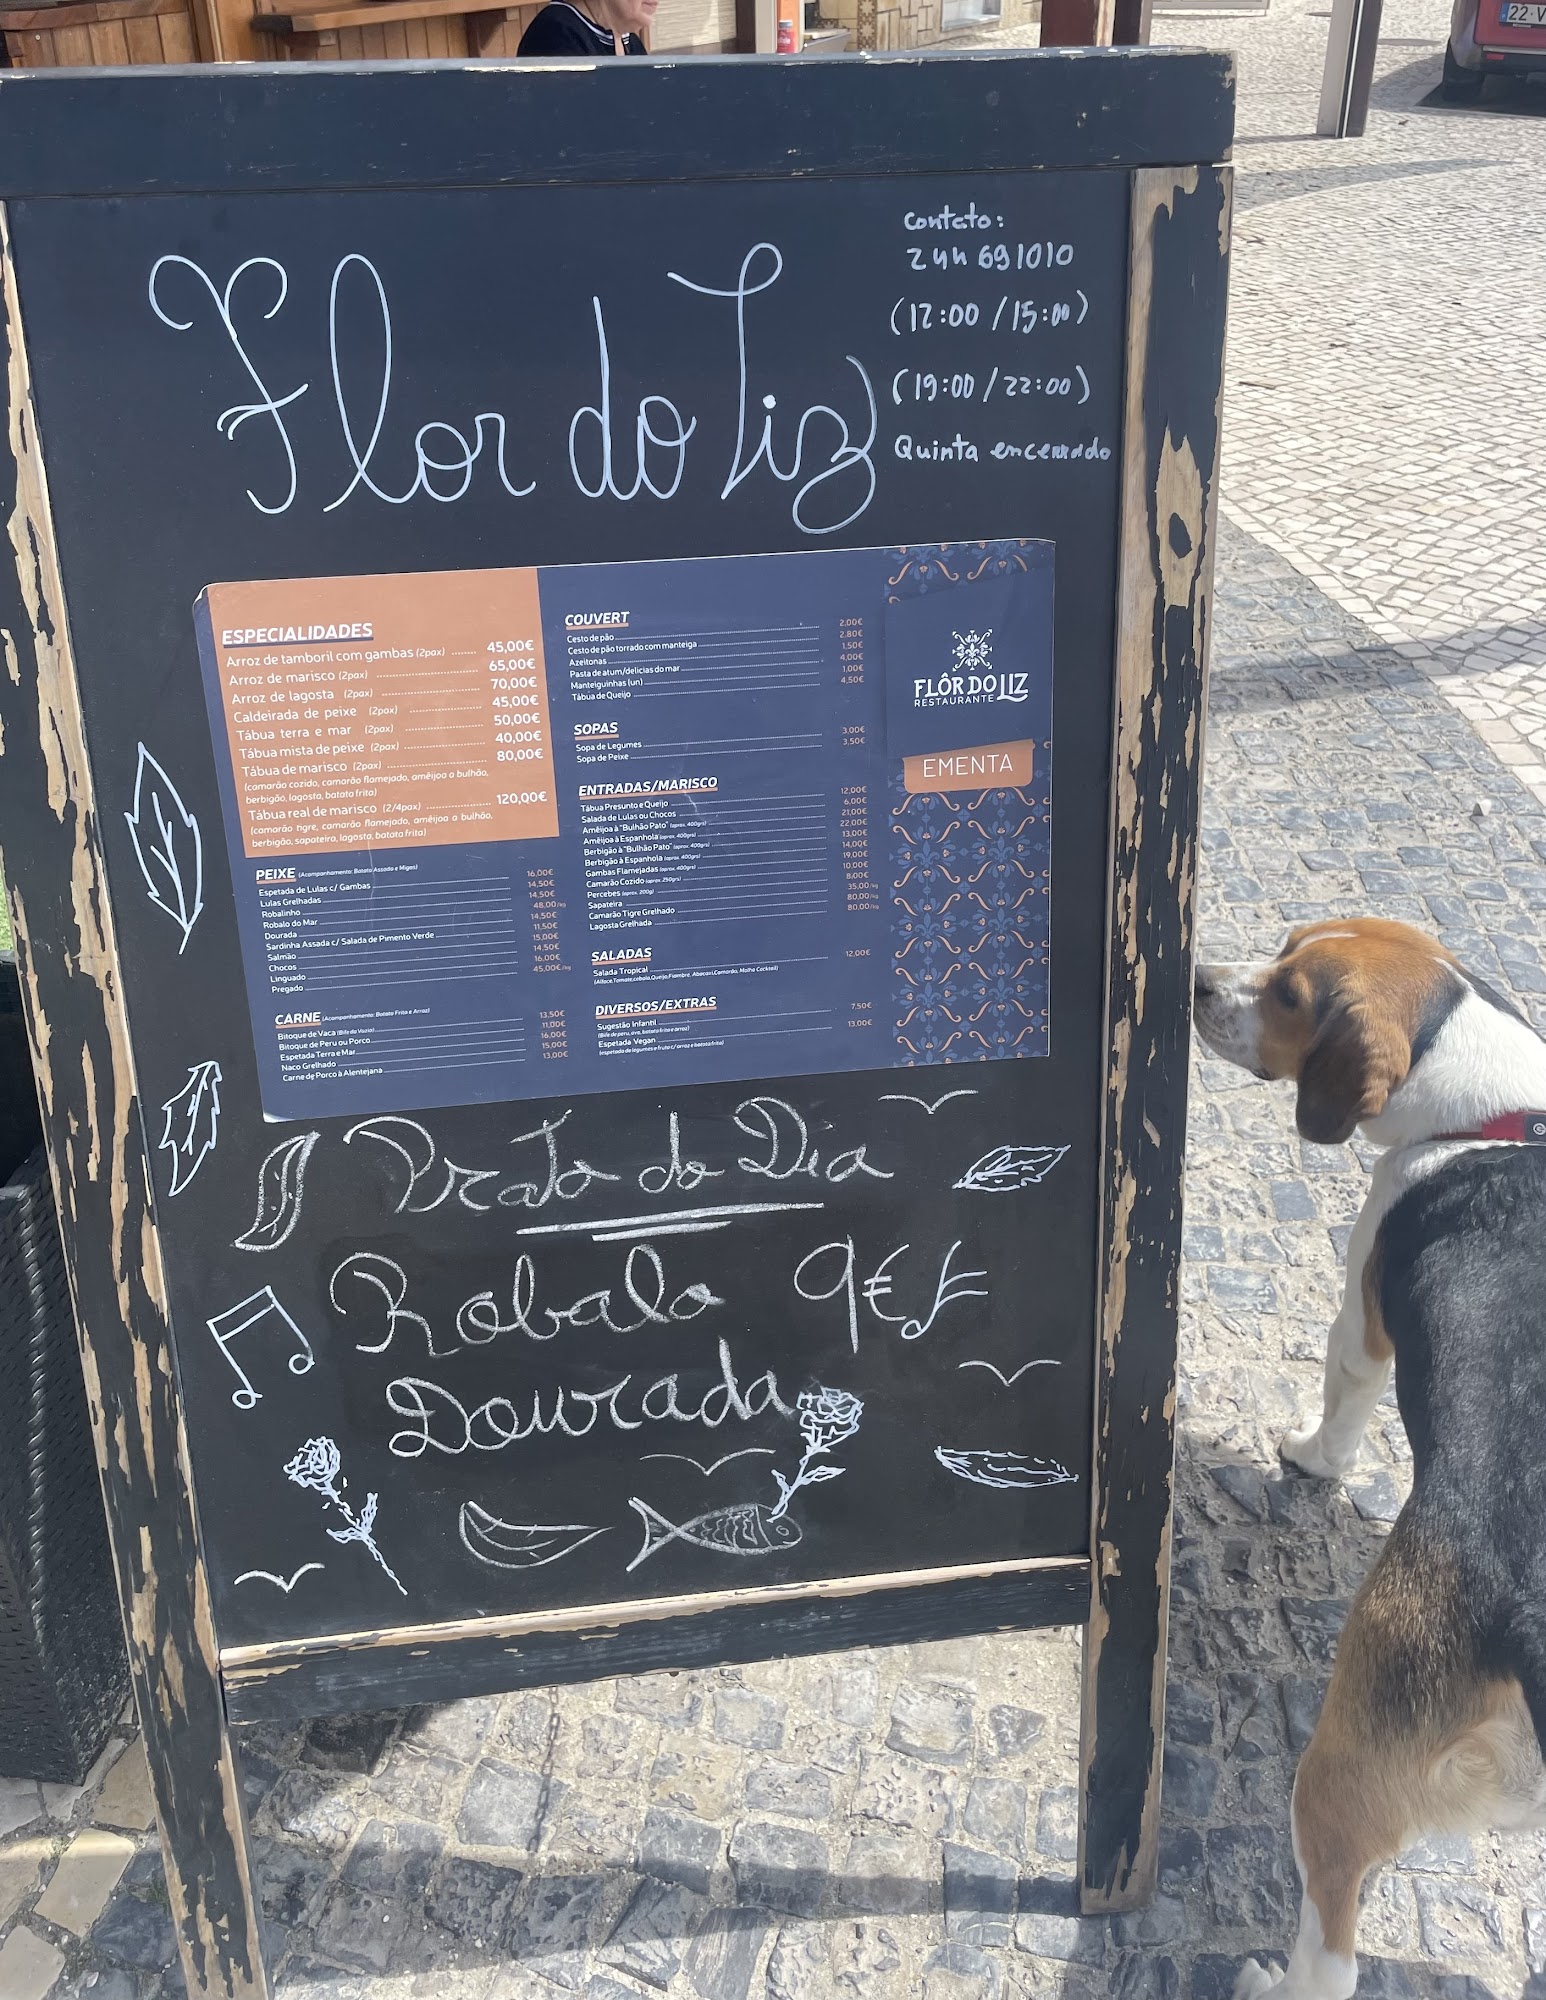 Flor do Liz
Contato:
244 691010
(12:00 / 15:00)
(19:00 / 22:00)
Quinta encerrado
ESPECIALIDADES
Arroz de tamboril com gambas (2pax) 45,00€
Arroz de marisco (2pax) 65,00€
Arroz de lagosta (2pax) 70,00€
Caldeirada de peixe (2pax) 45,00€
Tábua terra e mar (2pax) 50,00€
Tábua mista de peixe (2pax) 40,00€
Tábua de marisco (2pax) 80,00€
(camarão cozido, camarão flamejado, amêijoa a bulhão,
berbigão, lagosta, batata frita)
Tábua real de marisco (2/4pax) 120,00€
(camarão tigre, camarão flamejado, amêijoa a bulhão,
berbigão, sapateira, lagosta, batata frita)
PEIXE (Acompanhamento: Batata Assada e Migas)
Espetada de Lulas c/ Gambas 16,00€
Lulas Grelhadas 14,50€
Robalinho 14,50€
Robalo do Mar 48,00/kg
Dourada 14,50€
Sardinha Assada c/ Salada de Pimento Verde 11,50€
Salmão 15,00€
Chocos 14,50€
Linguado 16,00€
Pregado 45,00€/kg
CARNE (Acompanhamento: Batata Frita e Arroz)
Bitoque de Vaca (Bife da Vazia) 13,50€
Bitoque de Peru ou Porco 11,00€
Espetada Terra e Mar 16,00€
Naco Grelhado 15,00€
Carne de Porco à Alentejana 13,00€
COUVERT
Cesto de pão 2,00€
Cesto de pão torrado com manteiga 2,80€
Azeitonas 1,50€
Pasta de atum/delicias do mar 4,00€
Manteiguinhas (un) 1,00€
Tábua de Queijo 4,50€
SOPAS
Sopa de Legumes 3,00€
Sopa de Peixe 3,50€
ENTRADAS/MARISCO
Tábua Presunto e Queijo 12,00€
Salada de Lulas ou Chocos 6,00€
Amêijoa à "Bulhão Pato" (aprox. 400grs) 21,00€
Amêijoa à Espanhola (aprox. 400grs) 22,00€
Berbigão à "Bulhão Pato" (aprox. 400grs) 13,00€
Berbigão à Espanhola (aprox. 400grs) 14,00€
Gambas Flamejadas (aprox. 400grs) 19,00€
Camarão Cozido (aprox. 250grs) 10,00€
Percebes (aprox. 200g) 8,00€
Sapateira 35,00/kg
Camarão Tigre Grelhado 80,00/kg
Lagosta Grelhada 80,00/kg
SALADAS
Salada Tropical 12,00€
(Alface,Tomate,cebola,Queijo,Fiambre, Abacaxi,Camarão, Molho Cocktail)
DIVERSOS/EXTRAS
Sugestão Infantil 7,50€
(Bife de peru, ovo, batata frita e arroz)
Espetada Vegan 13,00€
(espetada de legumes e fruta c/ arroz e batata frita)
FLÔR DO LIZ
RESTAURANTE
EMENTA
Prato do Dia
Robalo 9€
Dourada